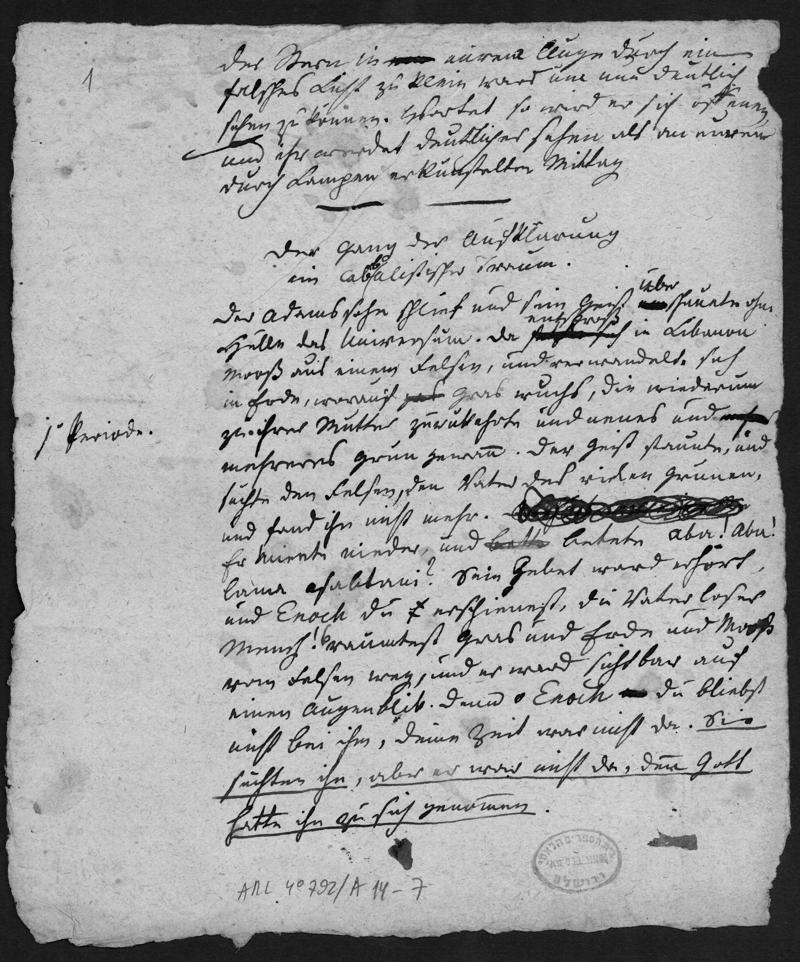 1
der Stern in eurem Auge durch ein
falsches Licht zu klein ward um nun deutlich
sehen zu können. Wartet so wird er sich öffenen,
und ihr werdet deutlicher sehen als an eurem
durch Lampen erkünstelten Mittag
Der Gang der Aufklärung
ein cabbalistischer Traum.
Der Adamssohn schlief und sein Geist über schaute ohne
Hülle das Universum. Da entsproß in Libanon
Mooß aus einem Felsen, und verwandelte sich
in Erde, worauf Gras wuchs, die wiederum
1e Periode.
zu ihrer Mutter zurükkehrte und neues und
mehreres grün gewann. Der Geist staunte, und
suchte den Felsen, den Vater des vielen grünen,
und fand ihn nicht mehr.
Er kniete nieder, und betete Aba! Aba!
lama asabtani? Sein Gebet ward erhört,
und Enoch du erschienest, du Vaterloser
Mensch! räumtest Gras und Erde und Mooß
vom Felsen weg, und er ward sichtbar auf
einen Augenblik. Denn o Enoch du bliebst
nicht bei ihm, deine Zeit war nicht da. Sie
suchten ihn, aber er war nicht da, denn Gott
hatte ihn zu sich genommen.
ARC 4° 792/A 14-7